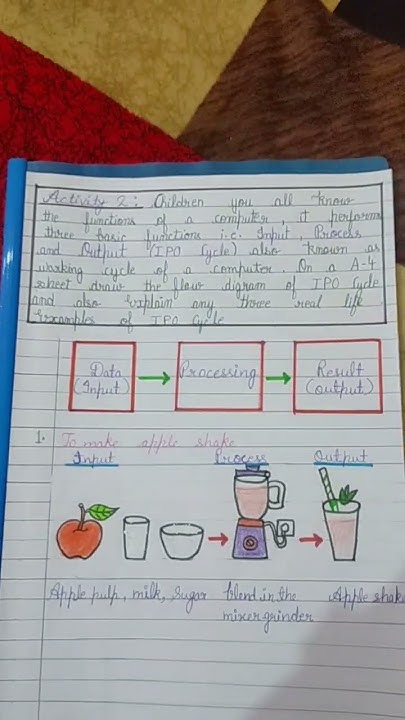 Activity 2: Children you all know
the functions of a computer, it performs
three basic functions i.e. Input, Process
and Output (IPO Cycle) also known as
working cycle of a computer. On a A-4
sheet draw the flow digram of IPO Cycle
and also Explain any three real life
Examples of IPO Cycle
Data (Input) Processing Result (output)
1. To make apple shake
Input Process Output
Apple pulp, milk, Sugar blend in the Apple shake
mixer grinder